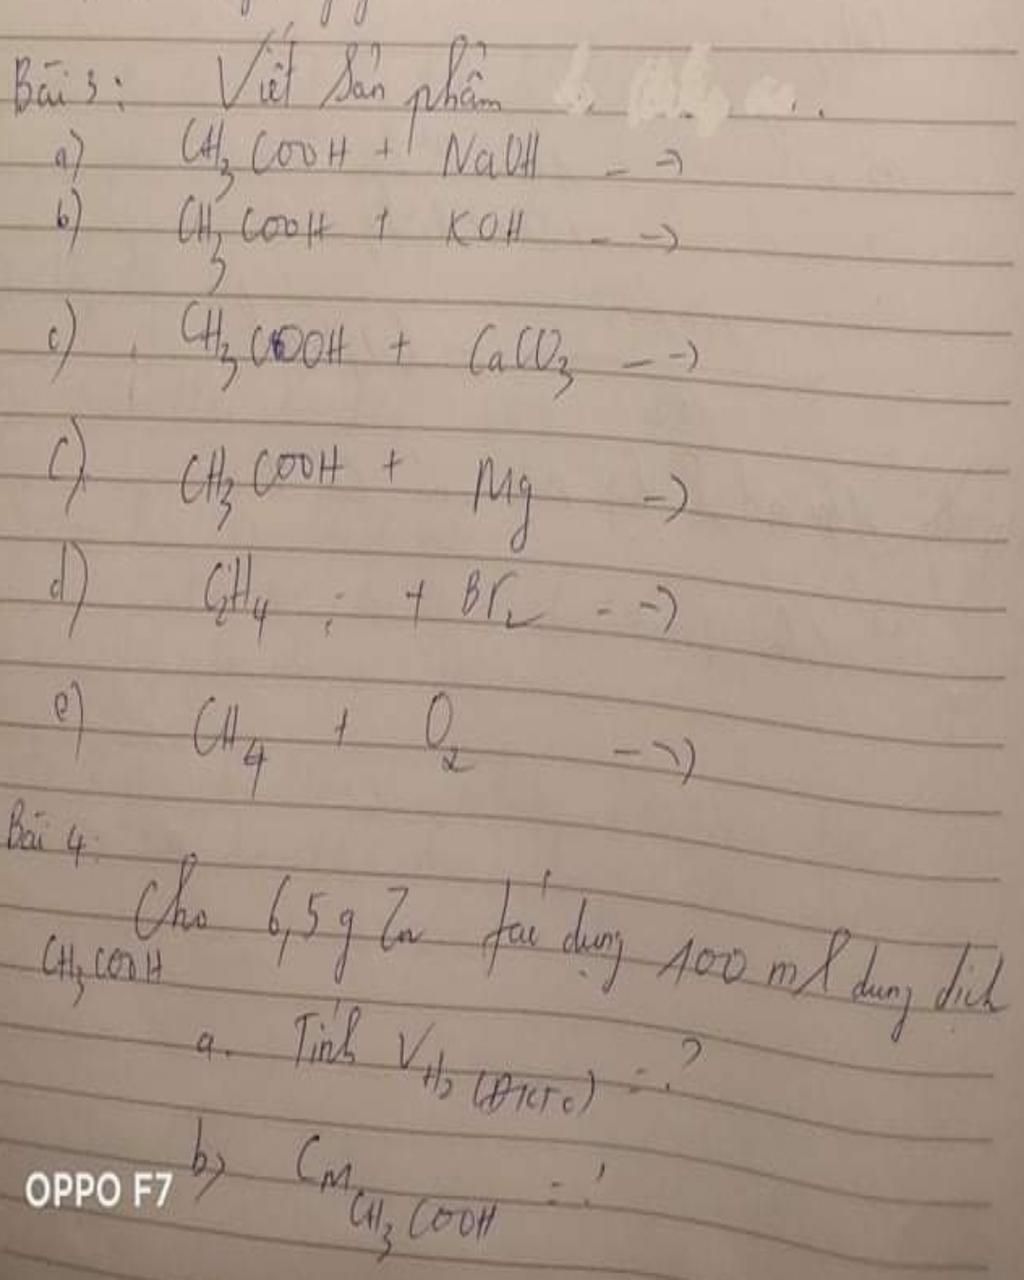 Bài 3: Viết sản phẩm
a) CH3COOH + NaOH -->
b) CH3COOH + KOH -->
c) CH3COOH + CaCO3 -->
c) CH3COOH + Mg ->
d) C2H4 + Br2 -->
e) CH4 + O2 -->
Bài 4:
Cho 6,5g Zn tác dụng 100 ml dung dịch
CH3COOH
a. Tính VH2 (ĐKTC) = ?
b) CM CH3COOH = ?
OPPO F7